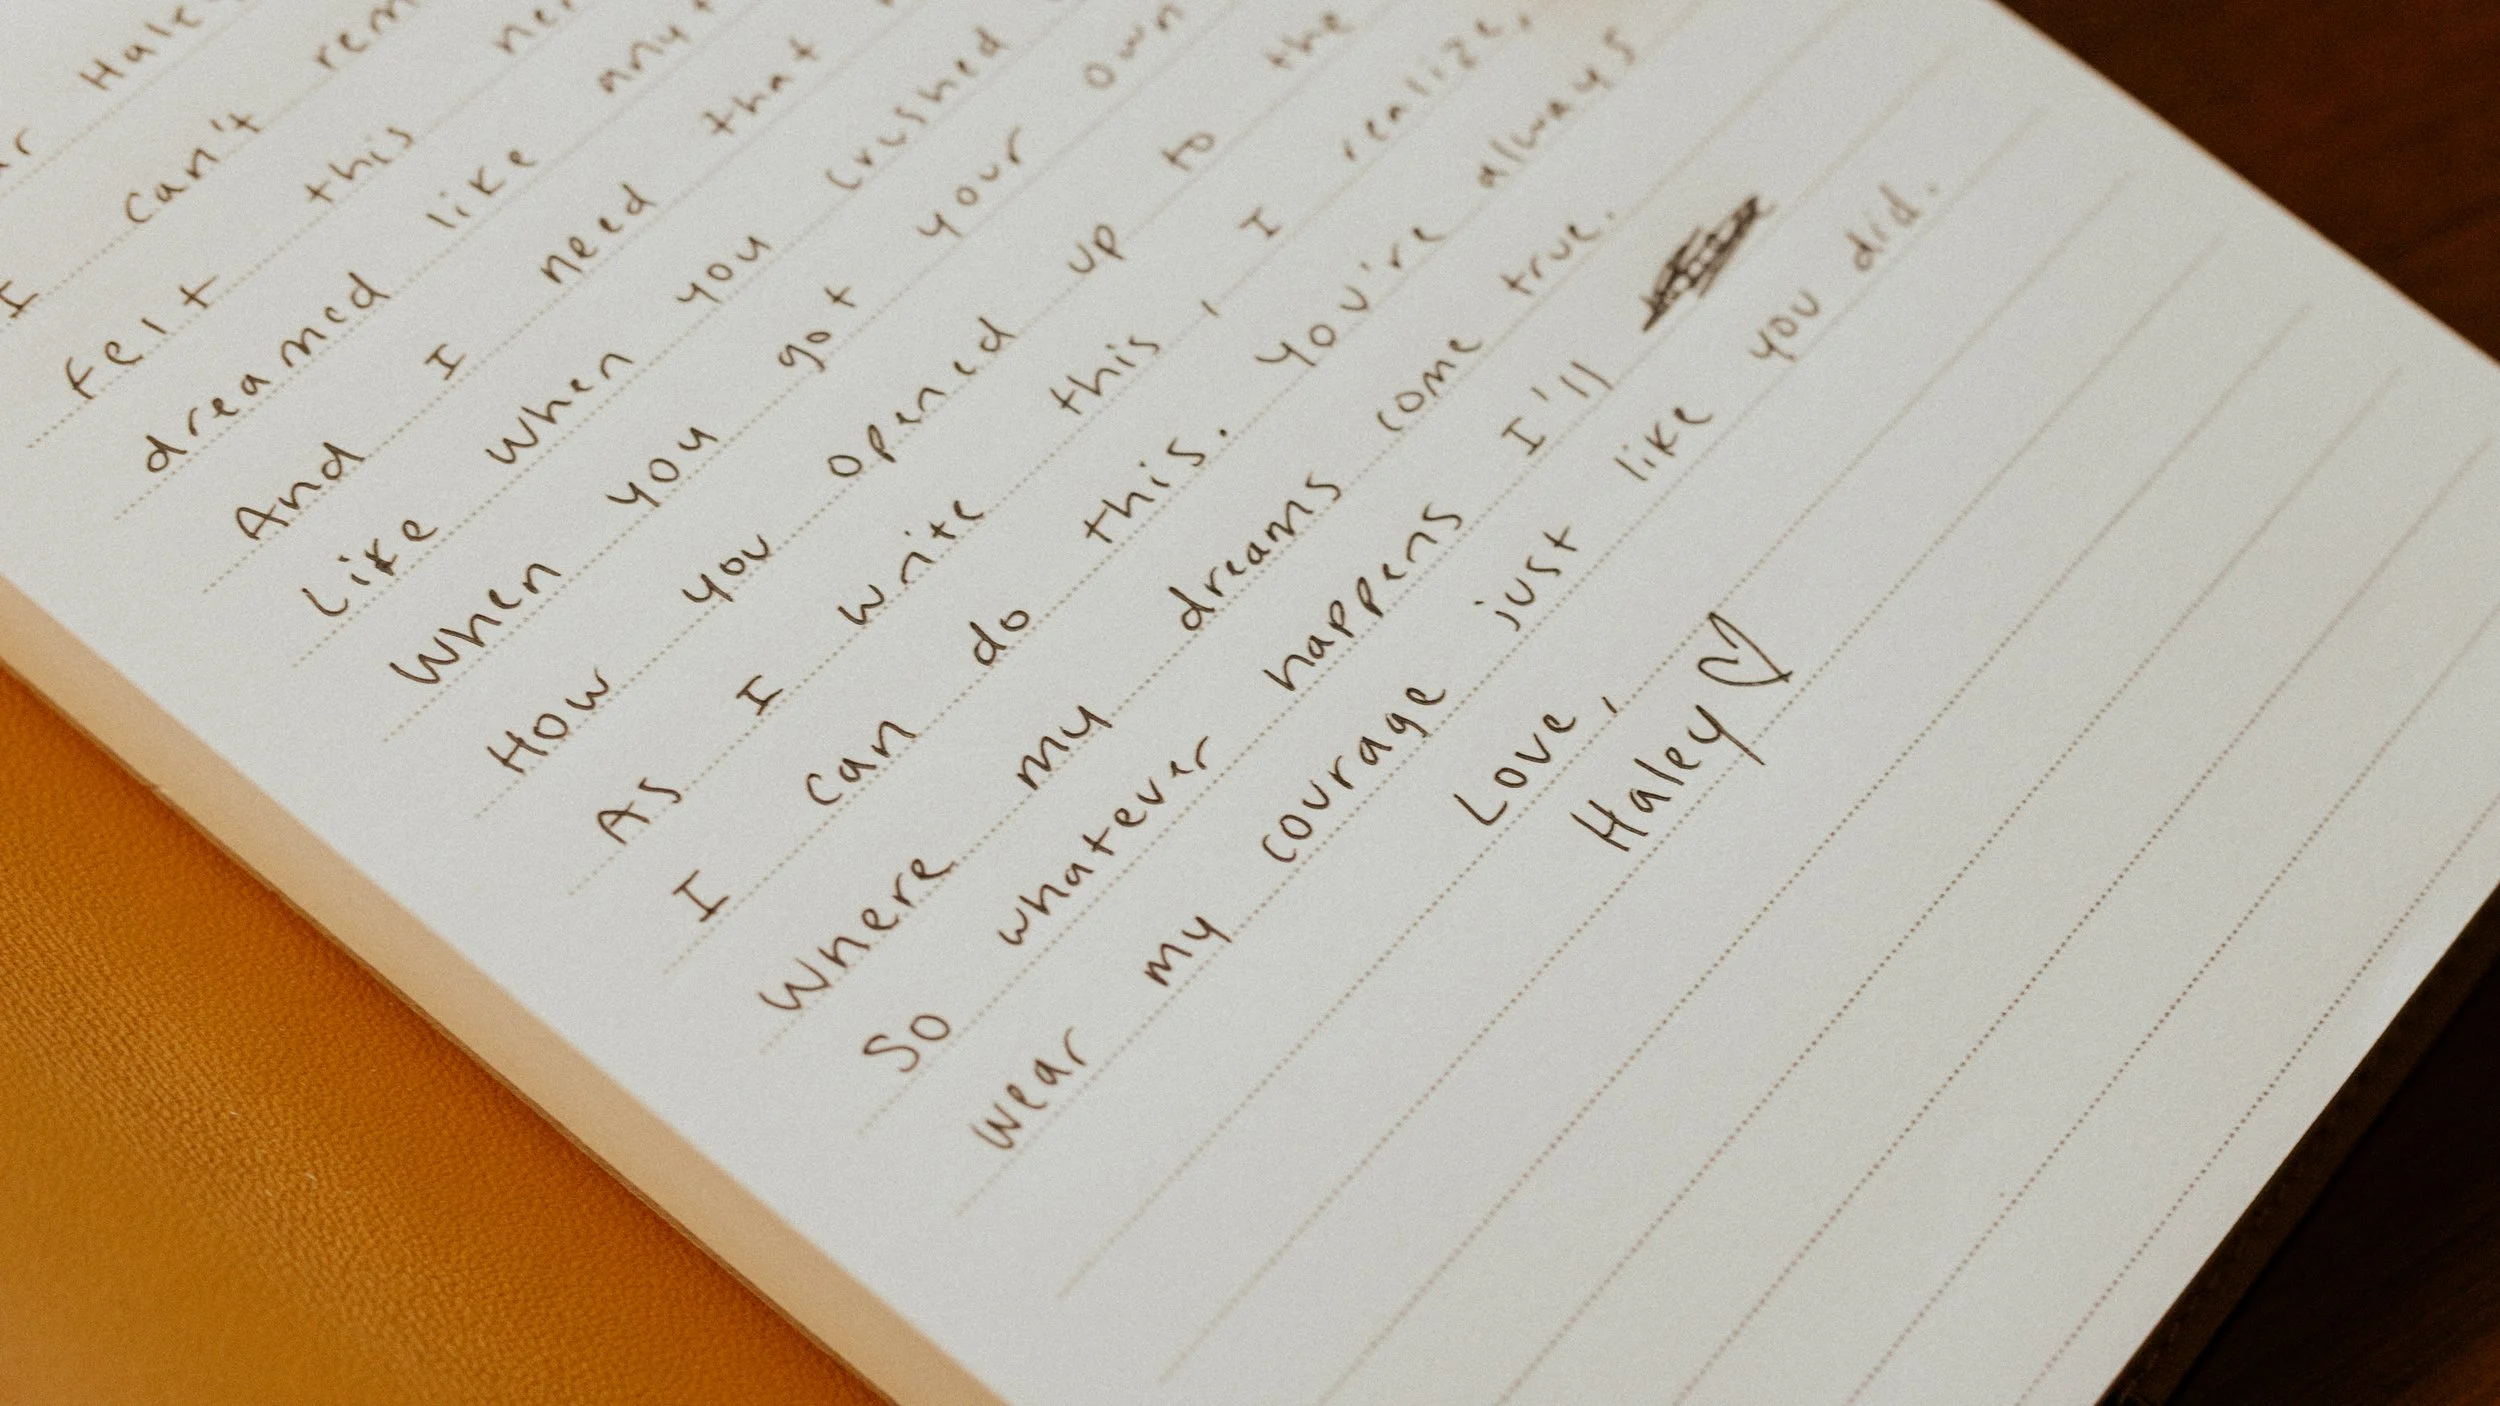 Haley
I can't
Felt this
dreamed like
And I need that
Like when you crushed
When you got your own
How you opened up to the
As I write this, I realize,
I can do this. You're always
Where my dreams come true.
So whatever happens I'll
wear my courage just like you did.
Love,
Haley